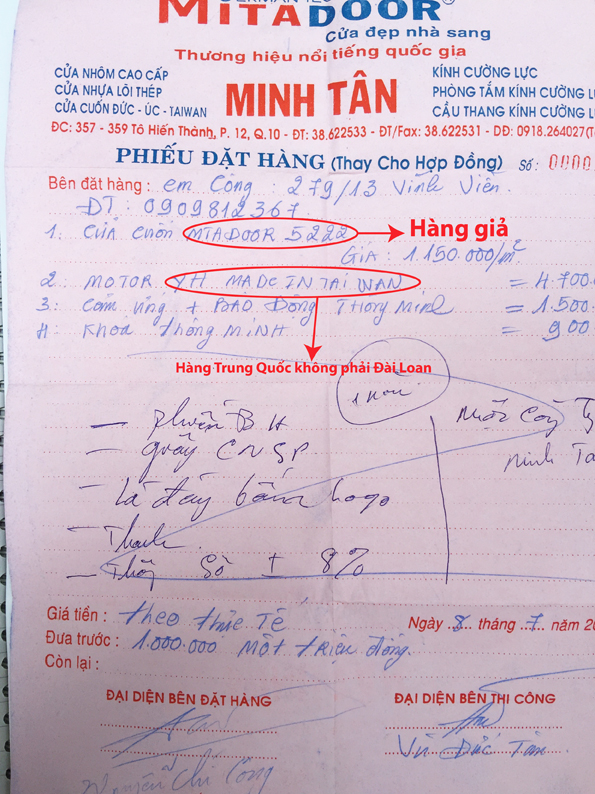 MITADOOR®
Cửa đẹp nhà sang
Thương hiệu nổi tiếng quốc gia
CỬA NHÔM CAO CẤP
CỬA NHỰA LÕI THÉP
CỬA CUỐN ĐỨC - ÚC - TAIWAN
MINH TÂN
KÍNH CƯỜNG LỰC
PHÒNG TẮM KÍNH CƯỜNG
CẦU THANG KÍNH CƯỜNG
ĐC: 357 - 359 Tô Hiến Thành, P. 12, Q.10 - ĐT: 38.622533 - ĐT/Fax: 38.622531 - DĐ: 0918.264027
PHIẾU ĐẶT HÀNG (Thay Cho Hợp Đồng) Số:
Bên đặt hàng: em Công : 279/13 Vĩnh Viễn.
ĐT: 0909812367
1. CỬA CUỐN MTADOOR 5222 Hàng giả
GIÁ: 1.150.000/m²
2. MOTOR YH MADE IN TAI WAN = 4.700.
3. + BÁO ĐỘNG THÔNG MINH = 1.500.
4. KHOÁ THÔNG MINH = 900
Hàng Trung Quốc không phải Đài Loan
— phiếu B H
— giấy CNSP
— Lá đáy logo
— Thanh
— Số ± 8%
Giá tiền: theo thực Tế
Ngày 8 tháng 7 năm 20
Đưa trước: 1.000.000 một triệu đồng.
Còn lại:
ĐẠI DIỆN BÊN ĐẶT HÀNG
ĐẠI DIỆN BÊN THI CÔNG
Nguyễn Chí Công
Vũ Đức